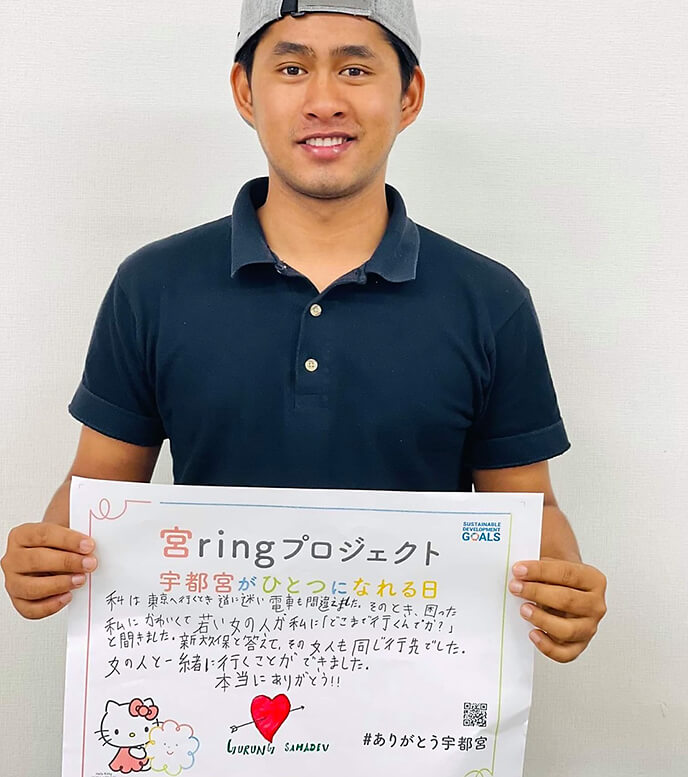 SUSTAINABLE
DEVELOPMENT
GOALS
宮ringプロジェクト
宇都宮がひとつになれる日
私は東京へ行くとき道に迷い電車も間違えました。そのとき、困った
私にかわいくて若い女の人が私に「どこまで行くんですか？」
と聞きました。新大久保と答えて、その女人も同じ行先でした。
女の人と一緒に行くことができました。
本当にありがとう!!
GURUNG SAHADEV
#ありがとう宇都宮